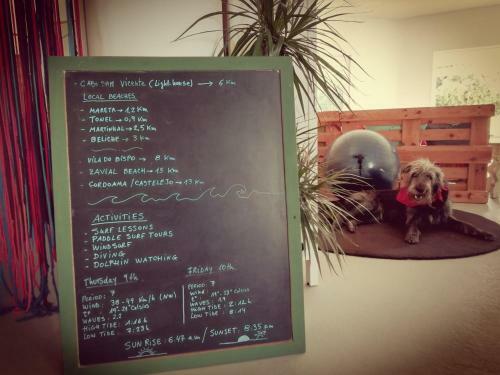 - CABO SAM Vicente (Light house) → 6 Km
LOCAL BEACHES
- MARETA → 1,2 Km
- TONEL → 0,9 Km
- MARTINHAL → 2,5 Km
- BELICHE → 3 Km
VILA DO BISPO → 8 Km
- ZAVIAL BEACH → 15 Km
- CORDOAMA / CASTELEJO → 13 Km
ACTIVITIES
- SURF LESSONS
- PADDLE SURF TOURS
- WINDSURF
- DIVING
- DOLPHIN WATCHING
Thursday 9th
PERIOD: 7
WIND: 38-49 Km/h (NW)
Tº 19º-21º Celsius
WAVES: 2.2
HIGH TIDE:
LOW TIDE: 7:23h
FRIDAY 10th
PERIOD: 7
WIND:
Celsius
WAVES: 1.9
HIGH TIDE: 2:12h
LOW TIDE: 8:14
SUNRISE: 6:47 a.m / SUNSET: 8:35 pm